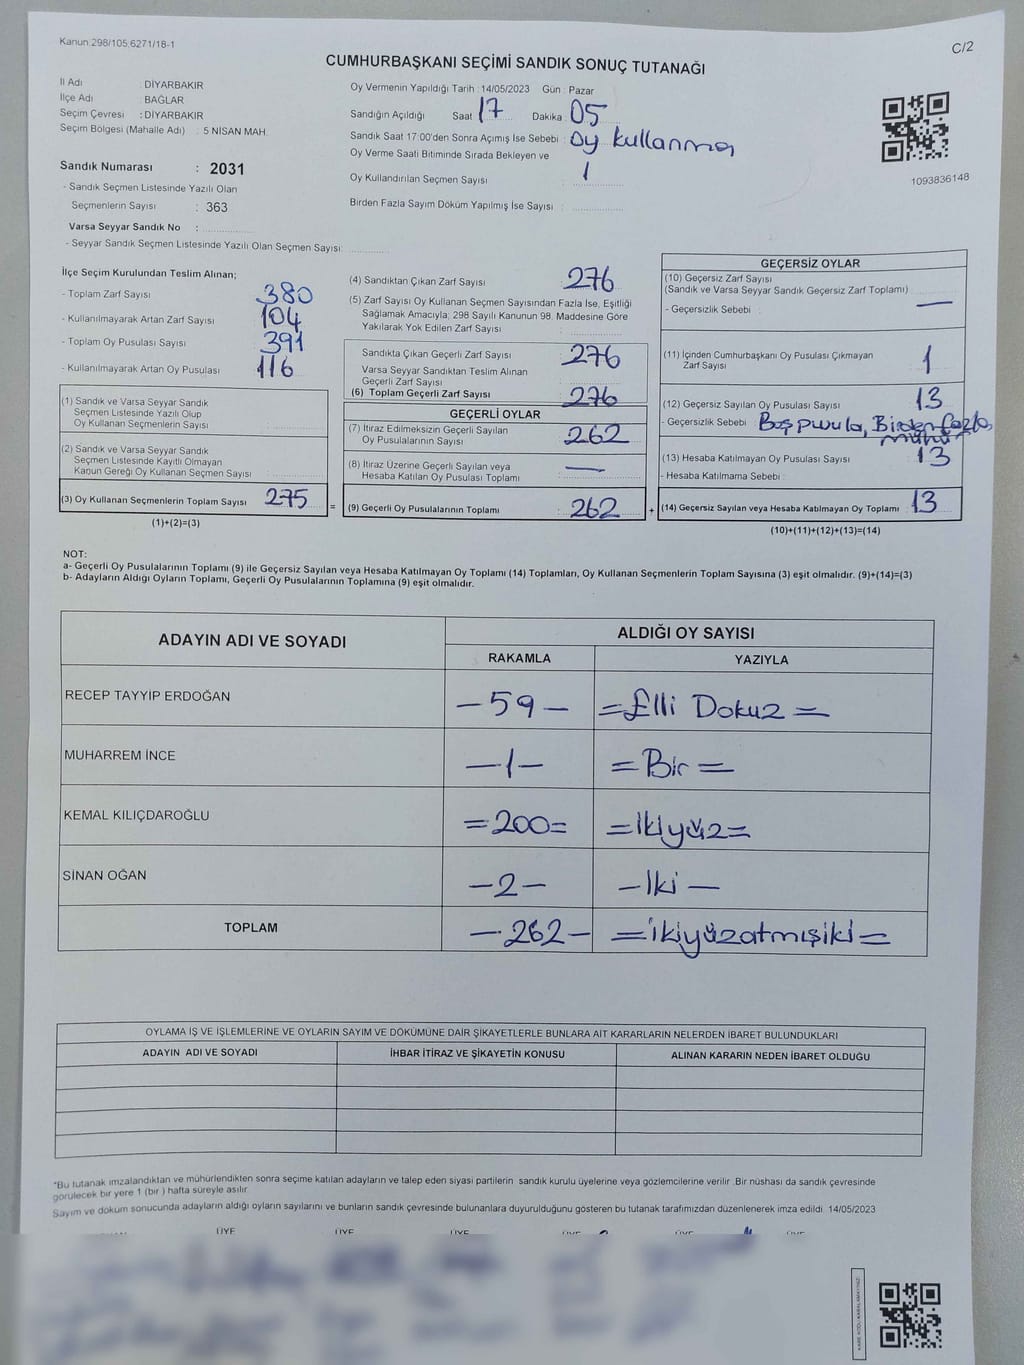 Kanun 298/105,6271/18-1
C/2
CUMHURBAŞKANI SEÇİMİ SANDIK SONUÇ TUTANAĞI
İl Adı : DİYARBAKIR
İlçe Adı : BAĞLAR
Seçim Çevresi : DİYARBAKIR
Seçim Bölgesi (Mahalle Adı) : 5 NİSAN MAH.
Sandık Numarası : 2031
- Sandık Seçmen Listesinde Yazılı Olan
Seçmenlerin Sayısı : 363
Varsa Seyyar Sandık No :
- Seyyar Sandık Seçmen Listesinde Yazılı Olan Seçmen Sayısı:
Oy Vermenin Yapıldığı Tarih : 14/05/2023 Gün : Pazar
Sandığın Açıldığı Saat 17 Dakika : 05
Sandık Saat 17:00'den Sonra Açımış İse Sebebi : Oy kullanma
Oy Verme Saati Bitiminde Sırada Bekleyen ve
Oy Kullandırılan Seçmen Sayısı : 1
Birden Fazla Sayım Döküm Yapılmış İse Sayısı :
1093836148
İlçe Seçim Kurulundan Teslim Alınan;
- Toplam Zarf Sayısı : 380
- Kullanılmayarak Artan Zarf Sayısı : 104
- Toplam Oy Pusulası Sayısı : 391
- Kullanılmayarak Artan Oy Pusulası : 116
(1) Sandık ve Varsa Seyyar Sandık
Seçmen Listesinde Yazılı Olup
Oy Kullanan Seçmenlerin Sayısı :
(2) Sandık ve Varsa Seyyar Sandık
Seçmen Listesinde Kayıtlı Olmayan
Kanun Gereği Oy Kullanan Seçmen Sayısı :
(3) Oy Kullanan Seçmenlerin Toplam Sayısı : 275 =
(1)+(2)=(3)
(4) Sandıktan Çıkan Zarf Sayısı : 276
(5) Zarf Sayısı Oy Kullanan Seçmen Sayısından Fazla İse, Eşitliği
Sağlamak Amacıyla; 298 Sayılı Kanunun 98. Maddesine Göre
Yakılarak Yok Edilen Zarf Sayısı :
Sandıkta Çıkan Geçerli Zarf Sayısı : 276
Varsa Seyyar Sandıktan Teslim Alınan
Geçerli Zarf Sayısı :
(6) Toplam Geçerli Zarf Sayısı : 276
GEÇERLİ OYLAR
(7) İtiraz Edilmeksizin Geçerli Sayılan
Oy Pusulalarının Sayısı : 262
(8) İtiraz Üzerine Geçerli Sayılan veya
Hesaba Katılan Oy Pusulası Toplamı : —
(9) Geçerli Oy Pusulalarının Toplamı : 262 +
GEÇERSİZ OYLAR
(10) Geçersiz Zarf Sayısı
(Sandık ve Varsa Seyyar Sandık Geçersiz Zarf Toplamı) : —
- Geçersizlik Sebebi :
(11) İçinden Cumhurbaşkanı Oy Pusulası Çıkmayan
Zarf Sayısı : 1
(12) Geçersiz Sayılan Oy Pusulası Sayısı : 13
- Geçersizlik Sebebi : Boş pusula, Birden fazla
mühür
(13) Hesaba Katılmayan Oy Pusulası Sayısı : 13
- Hesaba Katılmama Sebebi :
(14) Geçersiz Sayılan veya Hesaba Katılmayan Oy Toplamı : 13
(10)+(11)+(12)+(13)=(14)
NOT:
a- Geçerli Oy Pusulalarının Toplamı (9) ile Geçersiz Sayılan veya Hesaba Katılmayan Oy Toplamı (14) Toplamları, Oy Kullanan Seçmenlerin Toplam Sayısına (3) eşit olmalıdır. (9)+(14)=(3)
b- Adayların Aldığı Oyların Toplamı, Geçerli Oy Pusulalarının Toplamına (9) eşit olmalıdır.
ADAYIN ADI VE SOYADI
ALDIĞI OY SAYISI
RAKAMLA YAZIYLA
RECEP TAYYİP ERDOĞAN —59— =Elli Dokuz=
MUHARREM İNCE —1— =Bir=
KEMAL KILIÇDAROĞLU =200= =İkiyüz=
SİNAN OĞAN —2— —İki—
TOPLAM —262— =ikiyüzatmışiki=
OYLAMA İŞ VE İŞLEMLERİNE VE OYLARIN SAYIM VE DÖKÜMÜNE DAİR ŞİKAYETLERLE BUNLARA AİT KARARLARIN NELERDEN İBARET BULUNDUKLARI
ADAYIN ADI VE SOYADI İHBAR İTİRAZ VE ŞİKAYETİN KONUSU ALINAN KARARIN NEDEN İBARET OLDUĞU
*Bu tutanak imzalandıktan ve mühürlendikten sonra seçime katılan adayların ve talep eden siyasi partilerin sandık kurulu üyelerine veya gözlemcilerine verilir. Bir nüshası da sandık çevresinde
görülecek bir yere 1 (bir ) hafta süreyle asılır.
Sayım ve döküm sonucunda adayların aldığı oyların sayılarını ve bunların sandık çevresinde bulunanlara duyurulduğunu gösteren bu tutanak tarafımızdan düzenlenerek imza edildi. 14/05/2023
ÜYE ÜYE ÜYE ÜYE ÜYE ÜYE